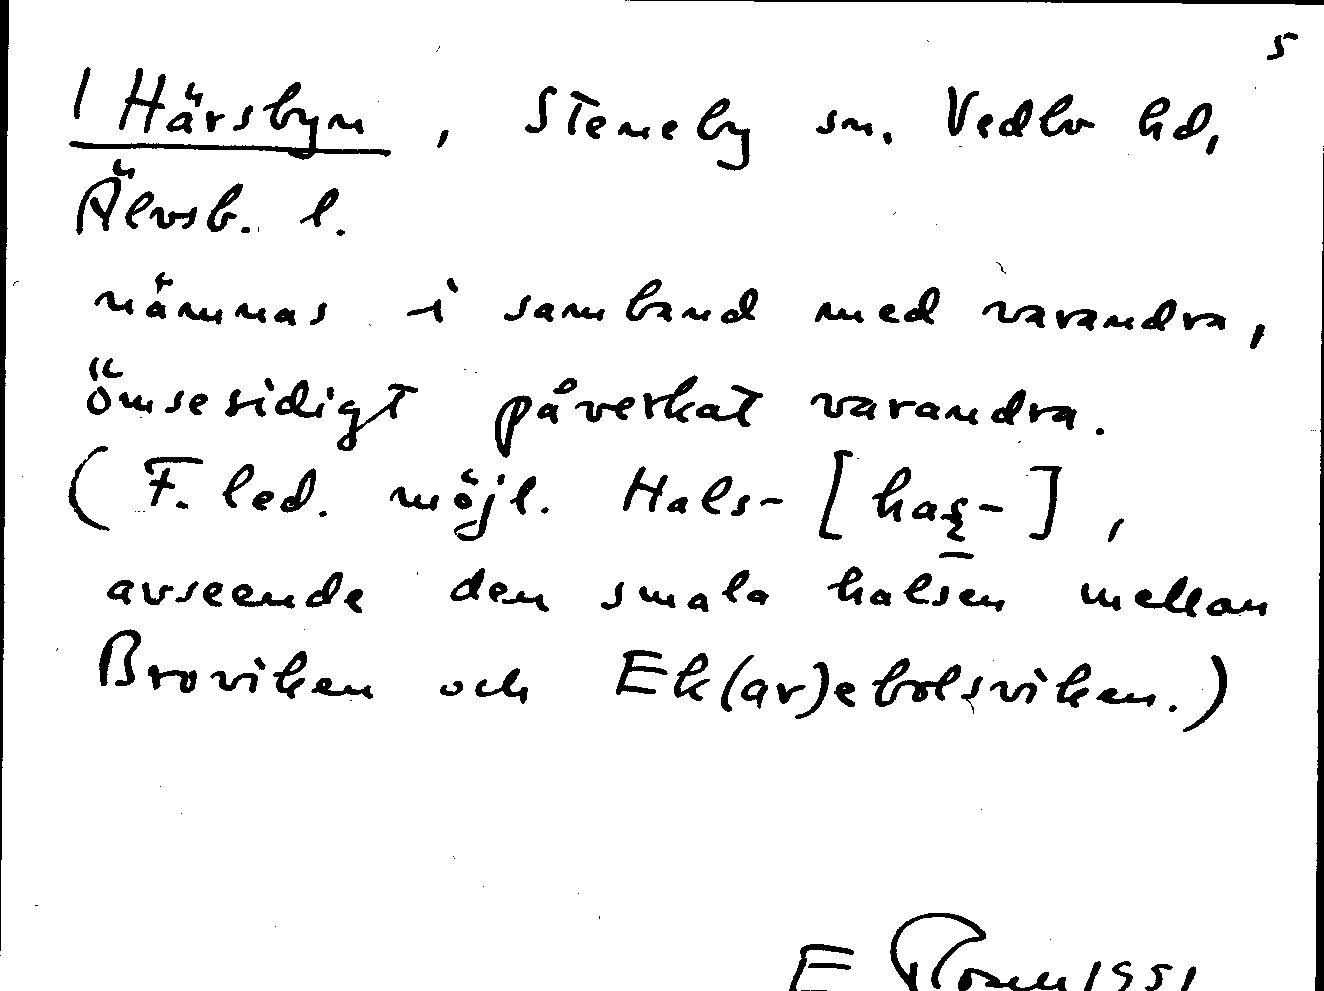 5
1 Härsbyn, Steneby sn. Vedbo hd,
Älvsb. l.
nämnas i samband med varandra,
ömsesidigt påverkat varandra.
(F. led. möjl. Hals- [haş-],
avseende den smala halsen mellan
Broviken och Ek(ar)ebolsviken.)
E 1951